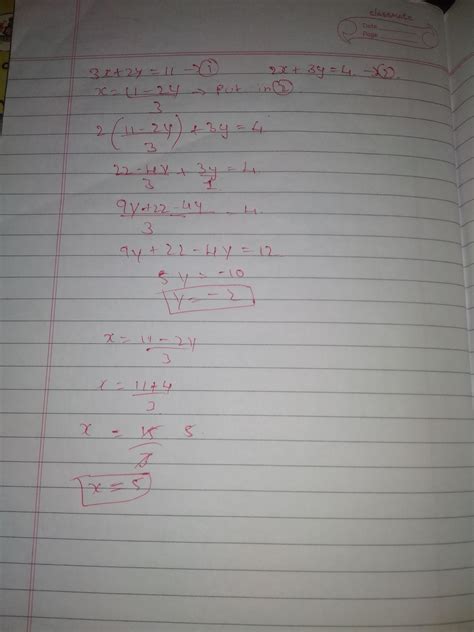 classmate
Date
Page
3x + 2y = 11 → ① 2x + 3y = 4 → ②
x = 11 - 2y / 3 → Put in ②
2 ( 11 - 2y / 3 ) + 3y = 4
22 - 4y / 3 + 3y / 1 = 4
9y + 22 - 4y / 3 = 4
9y + 22 - 4y = 12
5y = -10
y = -2
x = 11 - 2y / 3
x = 11 + 4 / 3
x = 15 / 3 5
x = 5